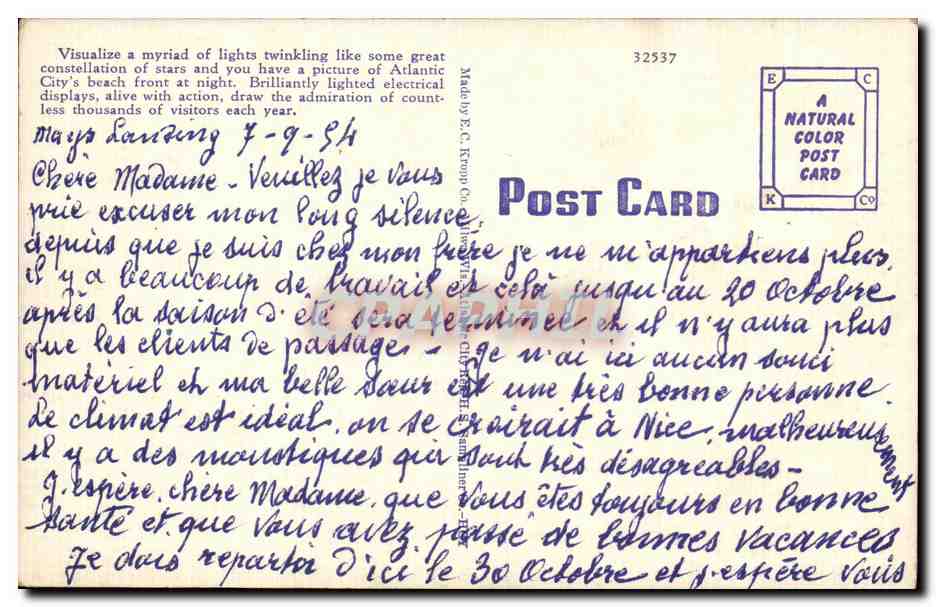 Visualize a myriad of lights twinkling like some great
constellation of stars and you have a picture of Atlantic
City's beach front at night. Brilliantly lighted electrical
displays, alive with action, draw the admiration of count-
less thousands of visitors each year.
32537
E C
A
NATURAL
COLOR
POST
CARD
K Co
POST CARD
Made by E. C. Kropp Co.
Mays Landing 7-9-54
Chère Madame - Veuillez je vous
prie excuser mon long silence,
depuis que je suis chez mon frère je ne m'appartiens plus.
il y a beaucoup de travail et celà jusqu'au 20 Octobre
après la saison d'été sera terminée et il n'y aura plus
que les clients de passage - Je n'ai ici aucun souci
matériel et ma belle sœur est une très bonne personne.
Le climat est idéal, on se croirait à Nice, malheureusement
il y a des moustiques qui sont très désagreables -
J'espère, chère Madame, que vous êtes toujours en bonne
santé et que vous avez passé de bonnes vacances
Je dois repartir d'ici le 30 Octobre et j'espère vous